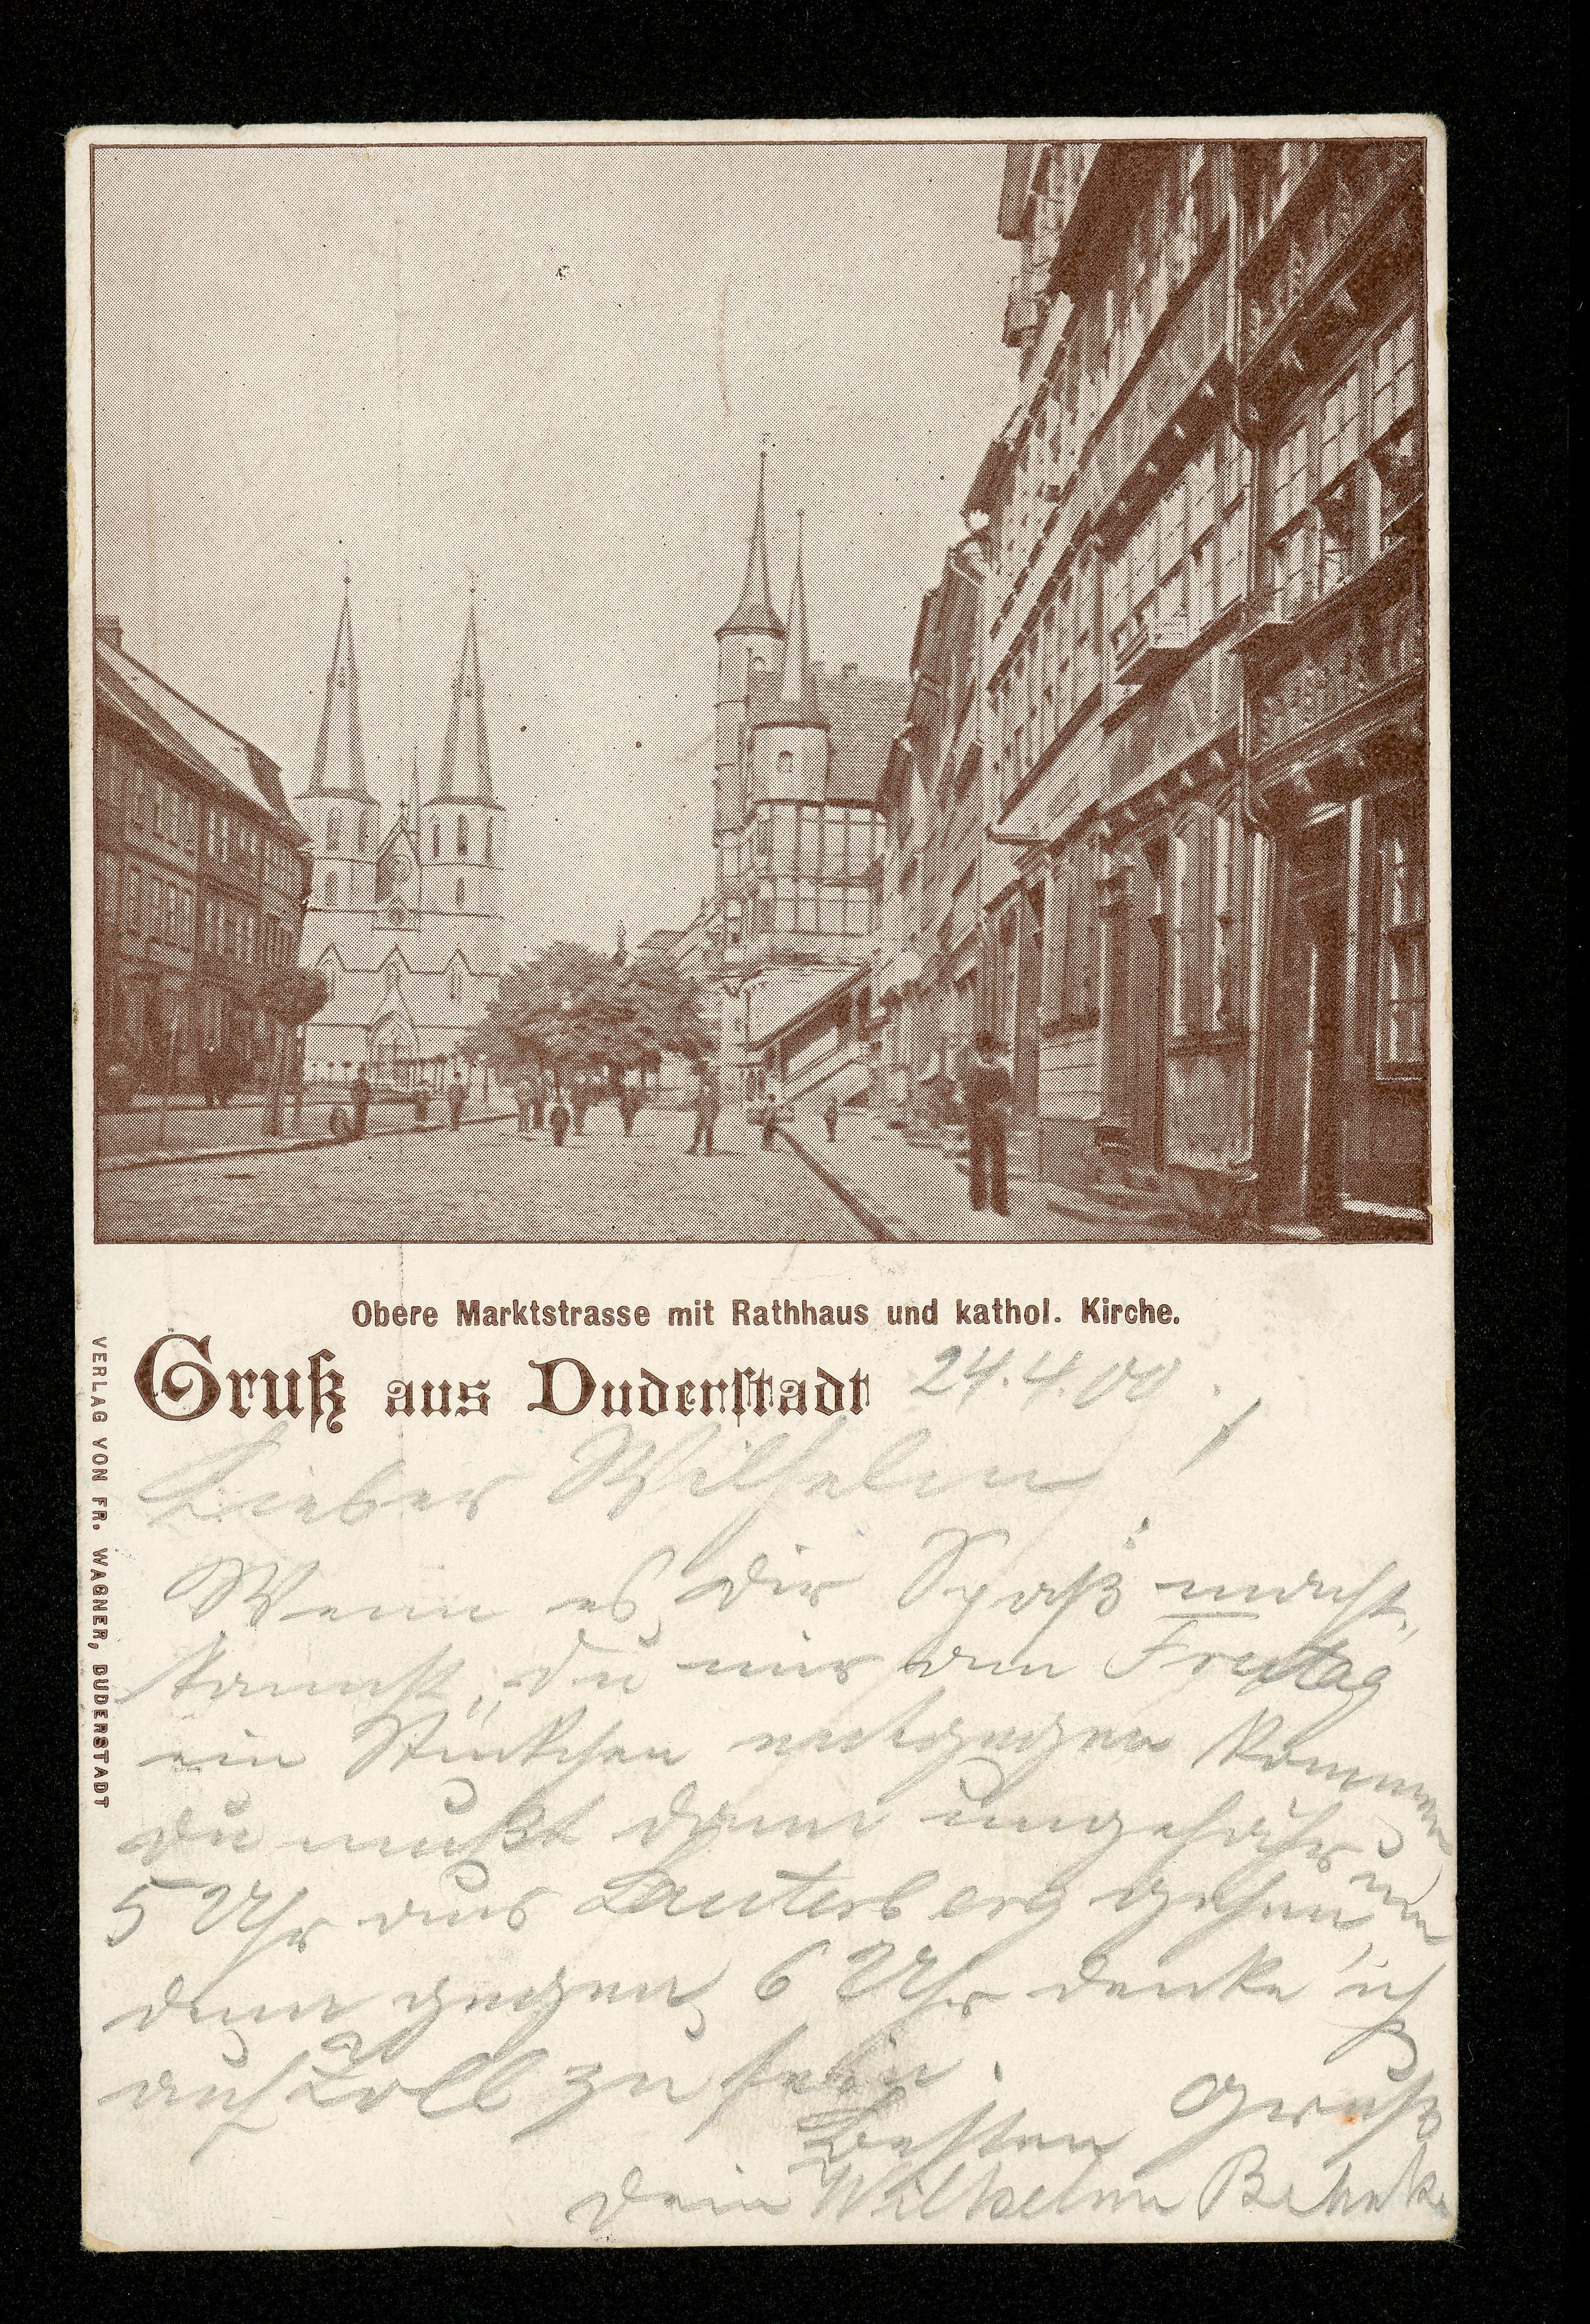 Obere Marktstrasse mit Rathhaus und kathol. Kirche.
Gruß aus Duderstadt
24.4.00.
VERLAG VON FR. WAGNER, DUDERSTADT
Lieber Wilhelm!
Wenn es dir Spaß macht,
kannst du mir am Freitag
ein Stückchen entgegen kommen
du mußt dann ungefähr um
5 Uhr aus Lauterberg gehen,
denn gegen 6 Uhr denke ich
auf Zoll zu sein.
Besten Gruß
dein Wilhelm